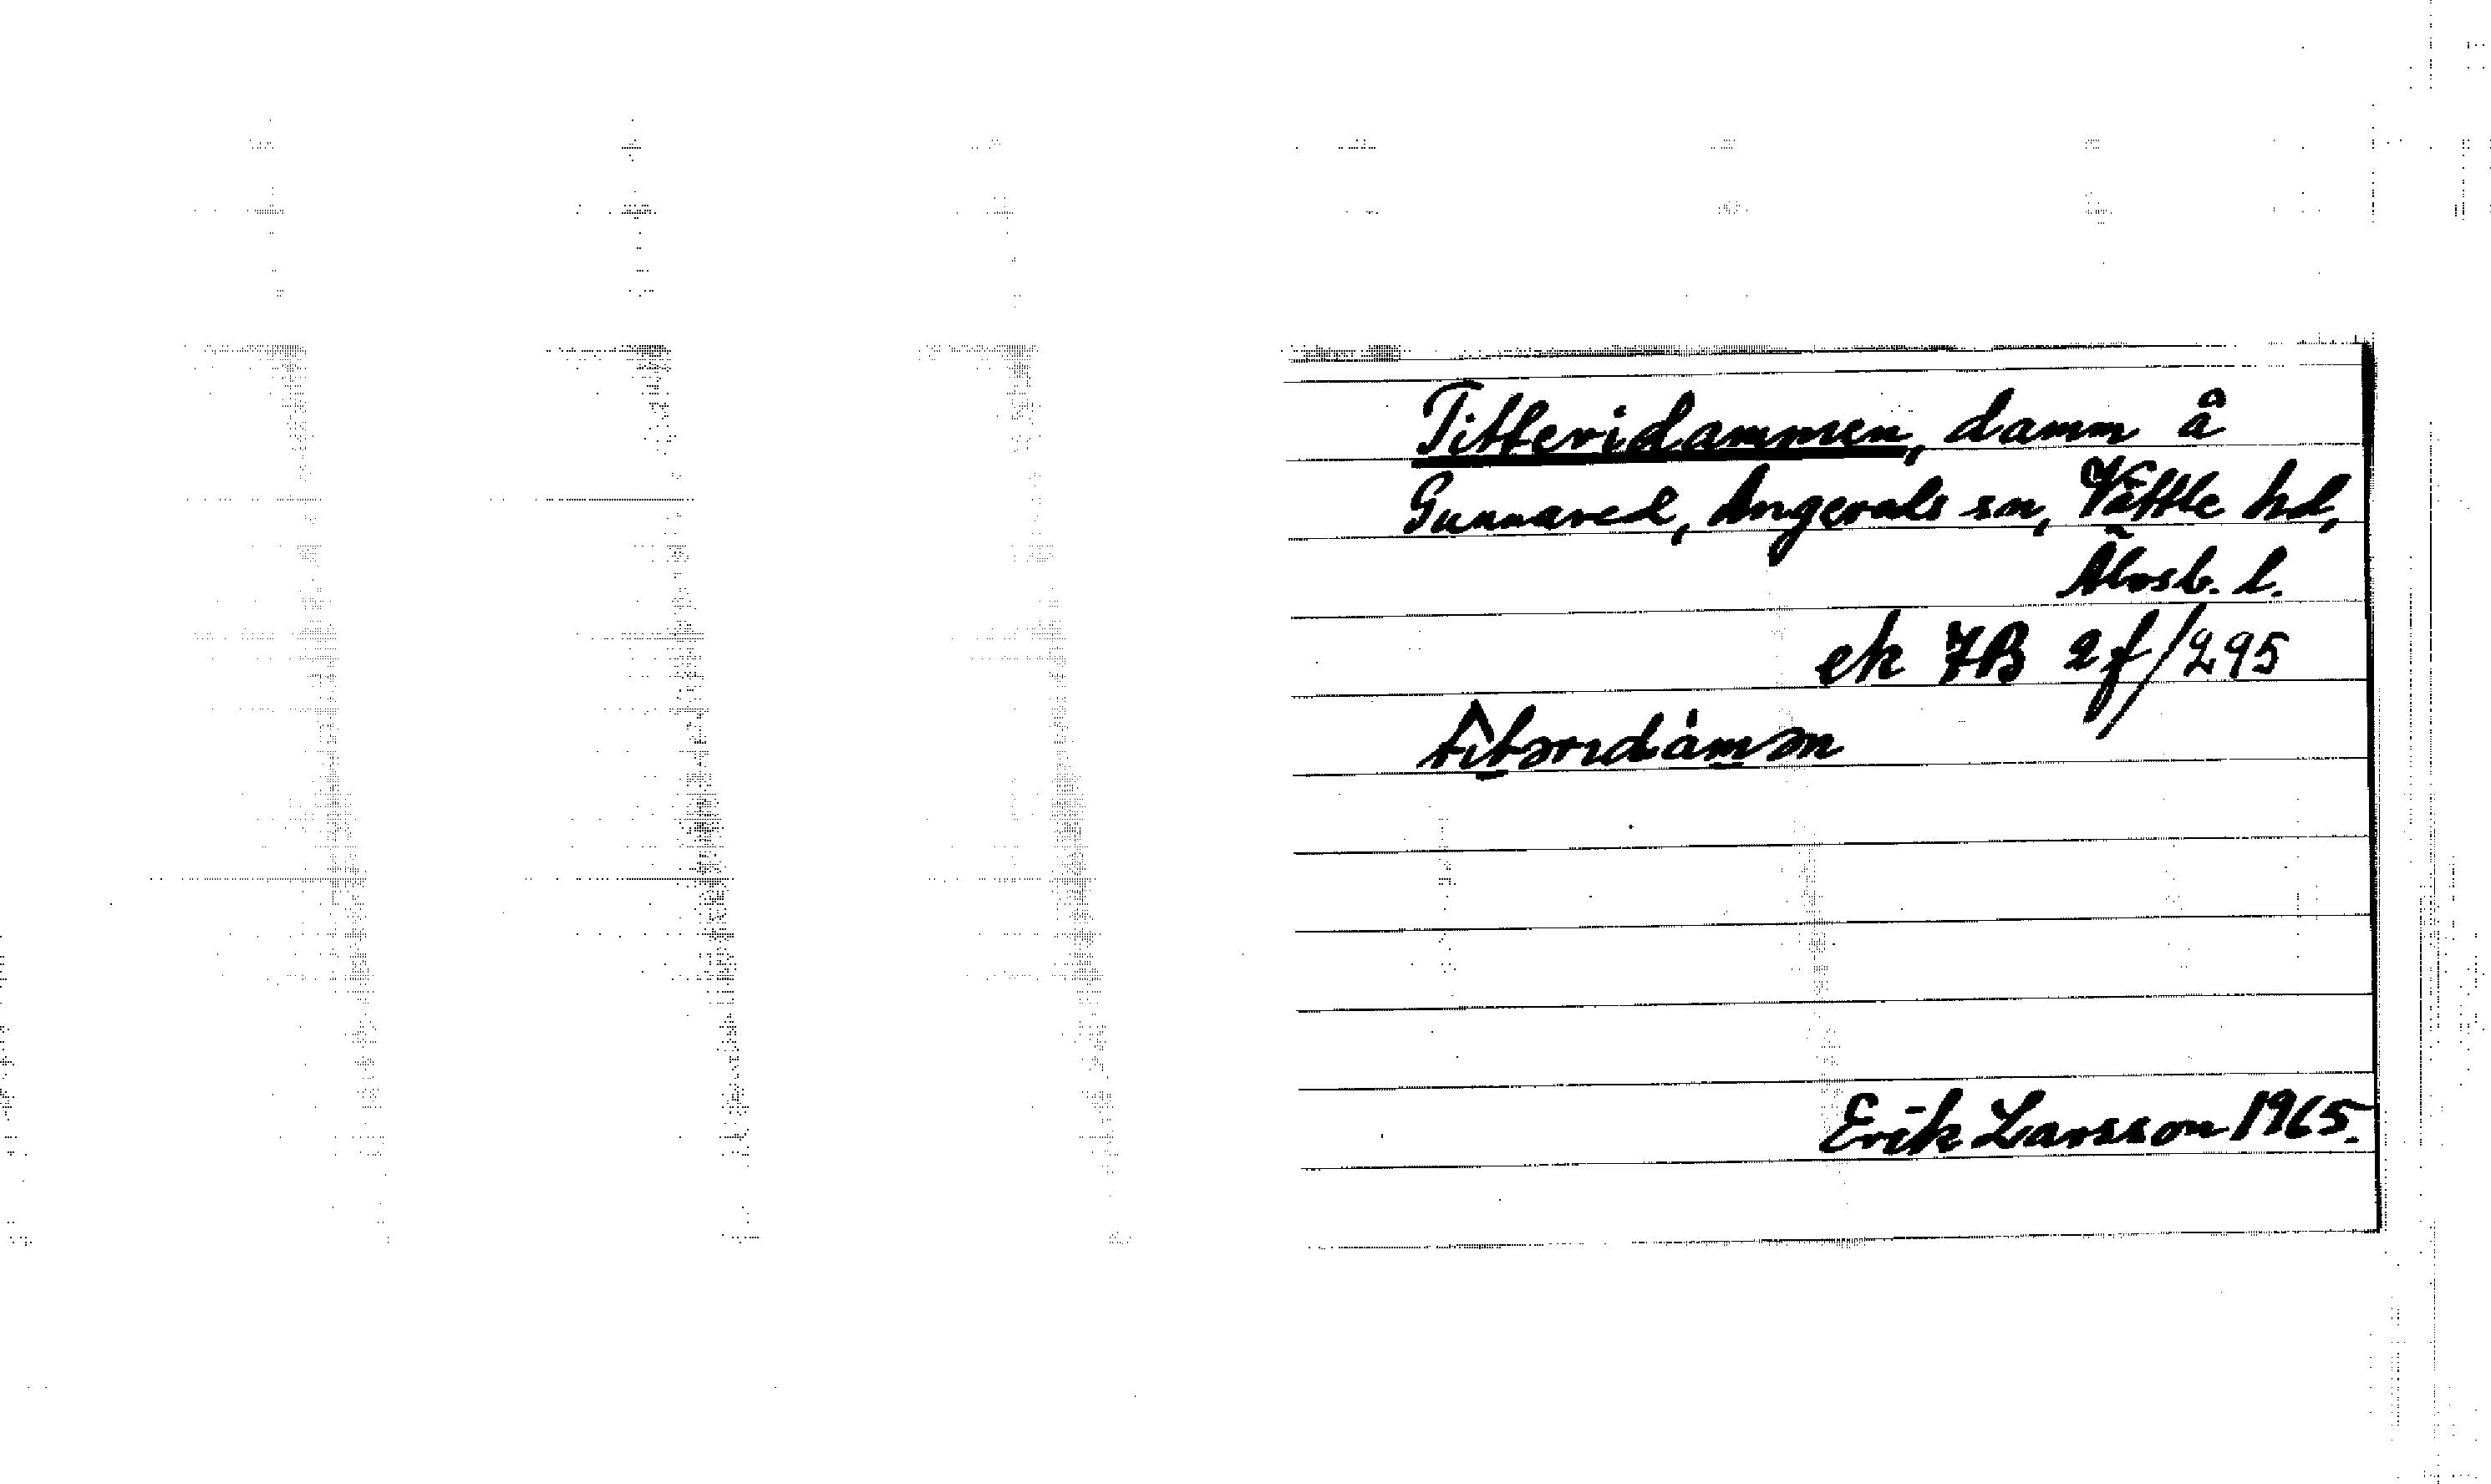 Titteridammen, damm å
Gunnared, Angereds sn, Vättle hd,
Älvsb. l.
ek 7B 2f/295
Erik Larsson 1965.